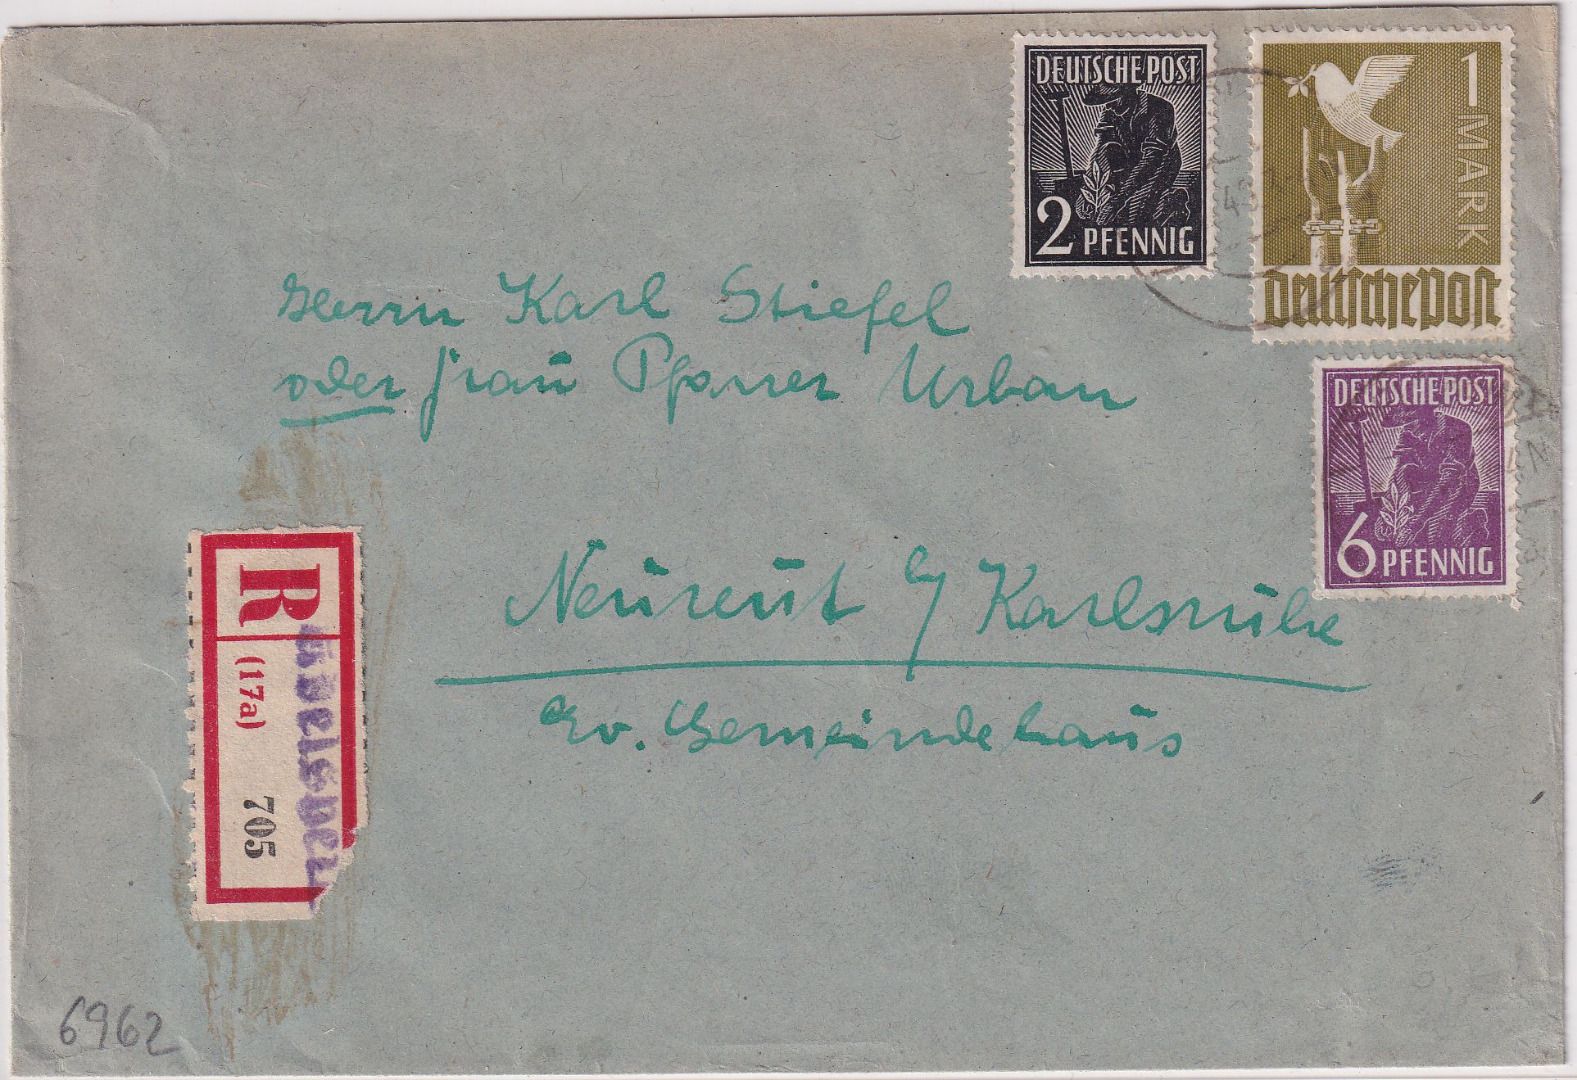 DEUTSCHE POST
2 PFENNIG
1 MARK
Deutsche Post
DEUTSCHE POST
6 PFENNIG
Herrn Karl Stiefel
oder Frau Pfarrer Urban
Neureut b/ Karlsruhe
Ev. Gemeindehaus
R
(17a)
705
6962